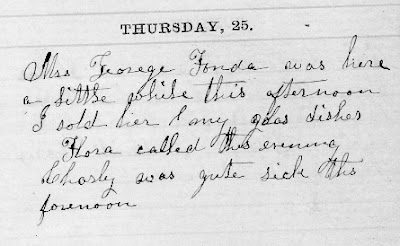 THURSDAY, 25.
Mrs Georege Fonda was here
a little while this afternoon
I sold her my glas dishes
Flora called this evening
Charly was qute sick this
forenoon